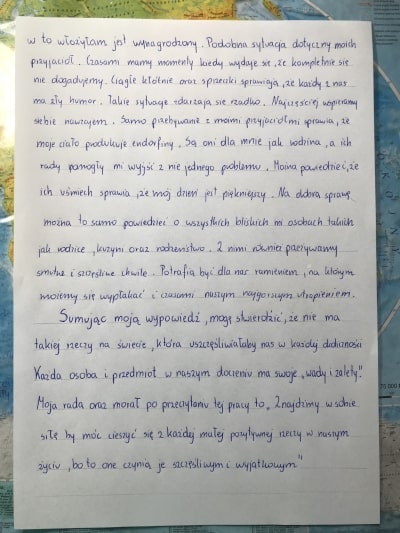 w to włożyłam jest wynagrodzony. Podobna sytuacja dotyczy moich
przyjaciół. Czasami mamy momenty kiedy wydaje się, że kompletnie się
nie dogadujemy. Ciągłe kłótnie oraz sprzeczki sprawiają, że każdy z nas
ma zły humor. Takie sytuacje zdarzają się rzadko. Najczęściej wspieramy
siebie nawzajem. Samo przebywanie z moimi przyjaciółmi sprawia, że
moje ciało produkuje endorfiny. Są oni dla mnie jak rodzina, a ich
rady pomogły mi wyjść z nie jednego problemu. Można powiedzieć, że
ich uśmiech sprawia, że mój dzień jest piękniejszy. Na dobrą sprawę
można to samo powiedzieć o wszystkich bliskich mi osobach takich
jak rodzice, kuzyni oraz rodzeństwo. Z nimi również przeżywamy
smutne i szczęśliwe chwile. Potrafią być dla nas ramieniem, na którym
możemy się wypłakać i czasami naszym najgorszym utrapieniem.
Sumując moją wypowiedź, mogę stwierdzić, że nie ma
takiej rzeczy na świecie, która uszczęśliwiałaby nas w każdej
Każda osoba i przedmiot w naszym otoczeniu ma swoje „wady i zalety".
Moja rada oraz morał po przeczytaniu tej pracy to, „Znajdźmy w sobie
siłę by móc cieszyć się z każdej małej pozytywnej rzeczy w naszym
życiu, bo to one czynią je szczęśliwym i wyjątkowym"